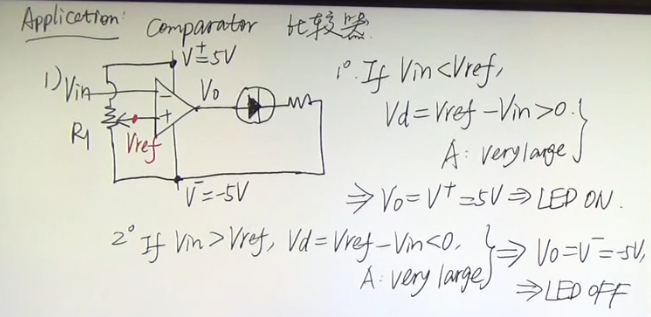 Application: Comparator 比较器
V⁺=5V
1) Vin
Vo
R1
Vref
V⁻=-5V
1° If Vin<Vref,
Vd=Vref-Vin>0.
A: very large
⇒ Vo=V⁺=5V ⇒ LED ON.
2° If Vin>Vref, Vd=Vref-Vin<0,
A: very large
⇒ Vo=V⁻=-5V,
⇒ LED OFF